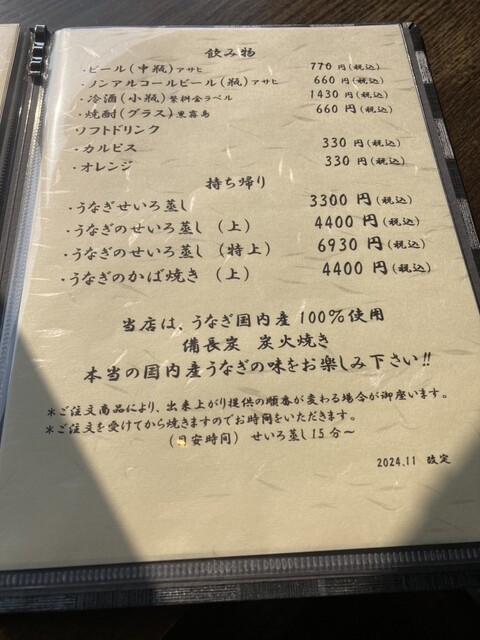 飲み物
・ビール(中瓶)アサヒ 770円(税込)
・ノンアルコールビール(瓶)アサヒ 660円(税込)
・冷酒(小瓶)繁桝金ラベル 1430円(税込)
・焼酎(グラス)黒霧島 660円(税込)
・ソフトドリンク
・カルピス 330円(税込)
・オレンジ 330円(税込)
持ち帰り
・うなぎせいろ蒸し 3300円(税込)
・うなぎのせいろ蒸し(上) 4400円(税込)
・うなぎのせいろ蒸し(特上) 6930円(税込)
・うなぎのかば焼き(上) 4400円(税込)
当店は、うなぎ国内産100%使用
備長炭 炭火焼き
本当の国内産うなぎの味をお楽しみ下さい!!
*ご注文商品により、出来上がり提供の順番が変わる場合が御座います。
*ご注文を受けてから焼きますのでお時間をいただきます。
(目安時間) せいろ蒸し15分〜
2024.11 改定